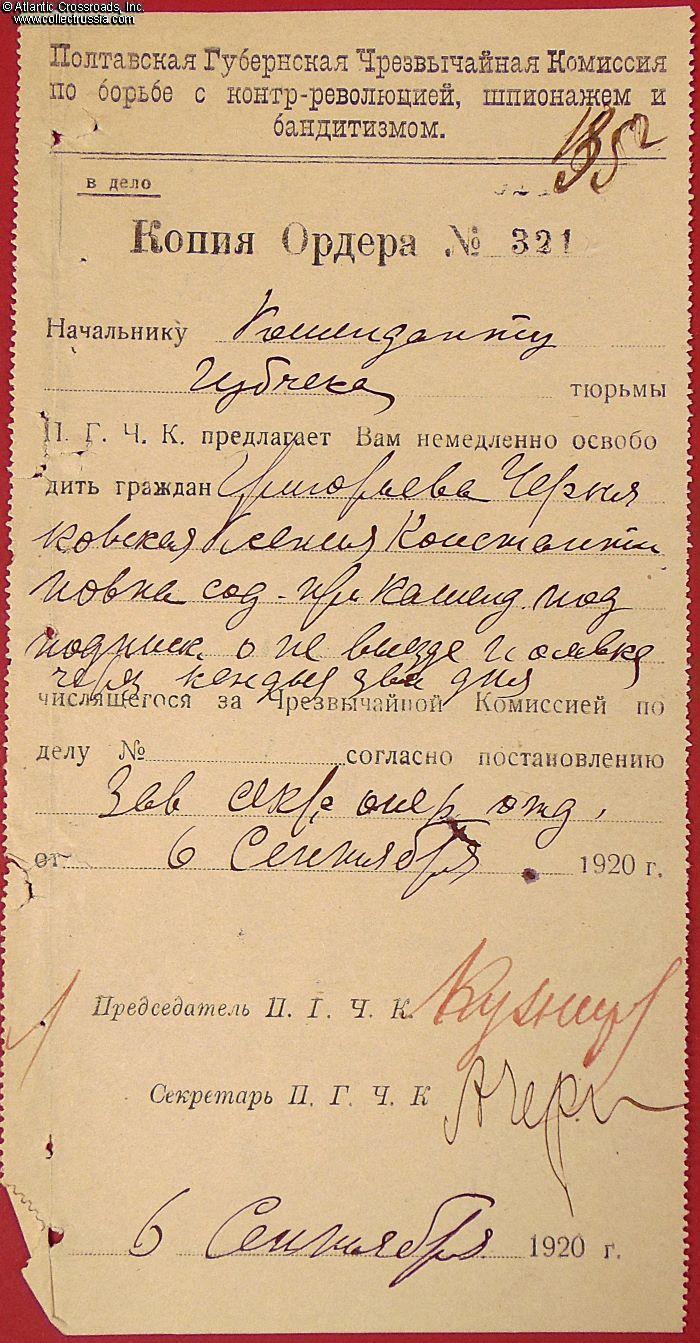 © Atlantic Crossroads, Inc.
www.collectrussia.com
Полтавская Губернская Чрезвычайная Комиссия
по борьбе с контр-революцией, шпионажем и
бандитизмом.
в дело
Копия Ордера № 321
Начальнику Коменданту
Губчека тюрьмы
П. Г. Ч. К. предлагает Вам немедленно освобо
дить граждан Григорьева Черня
ковская Ксения Константи
новна сод. при коменд. под
подписк. о не выезде и явке
через каждыя два дня
числящегося за Чрезвычайной Комиссией по
делу № согласно постановлению
Зав секр. опер. отд.
от 6 Сентября 1920 г.
Председатель П. Г. Ч. К.
Секретарь П. Г. Ч. К
6 Сентября 1920 г.